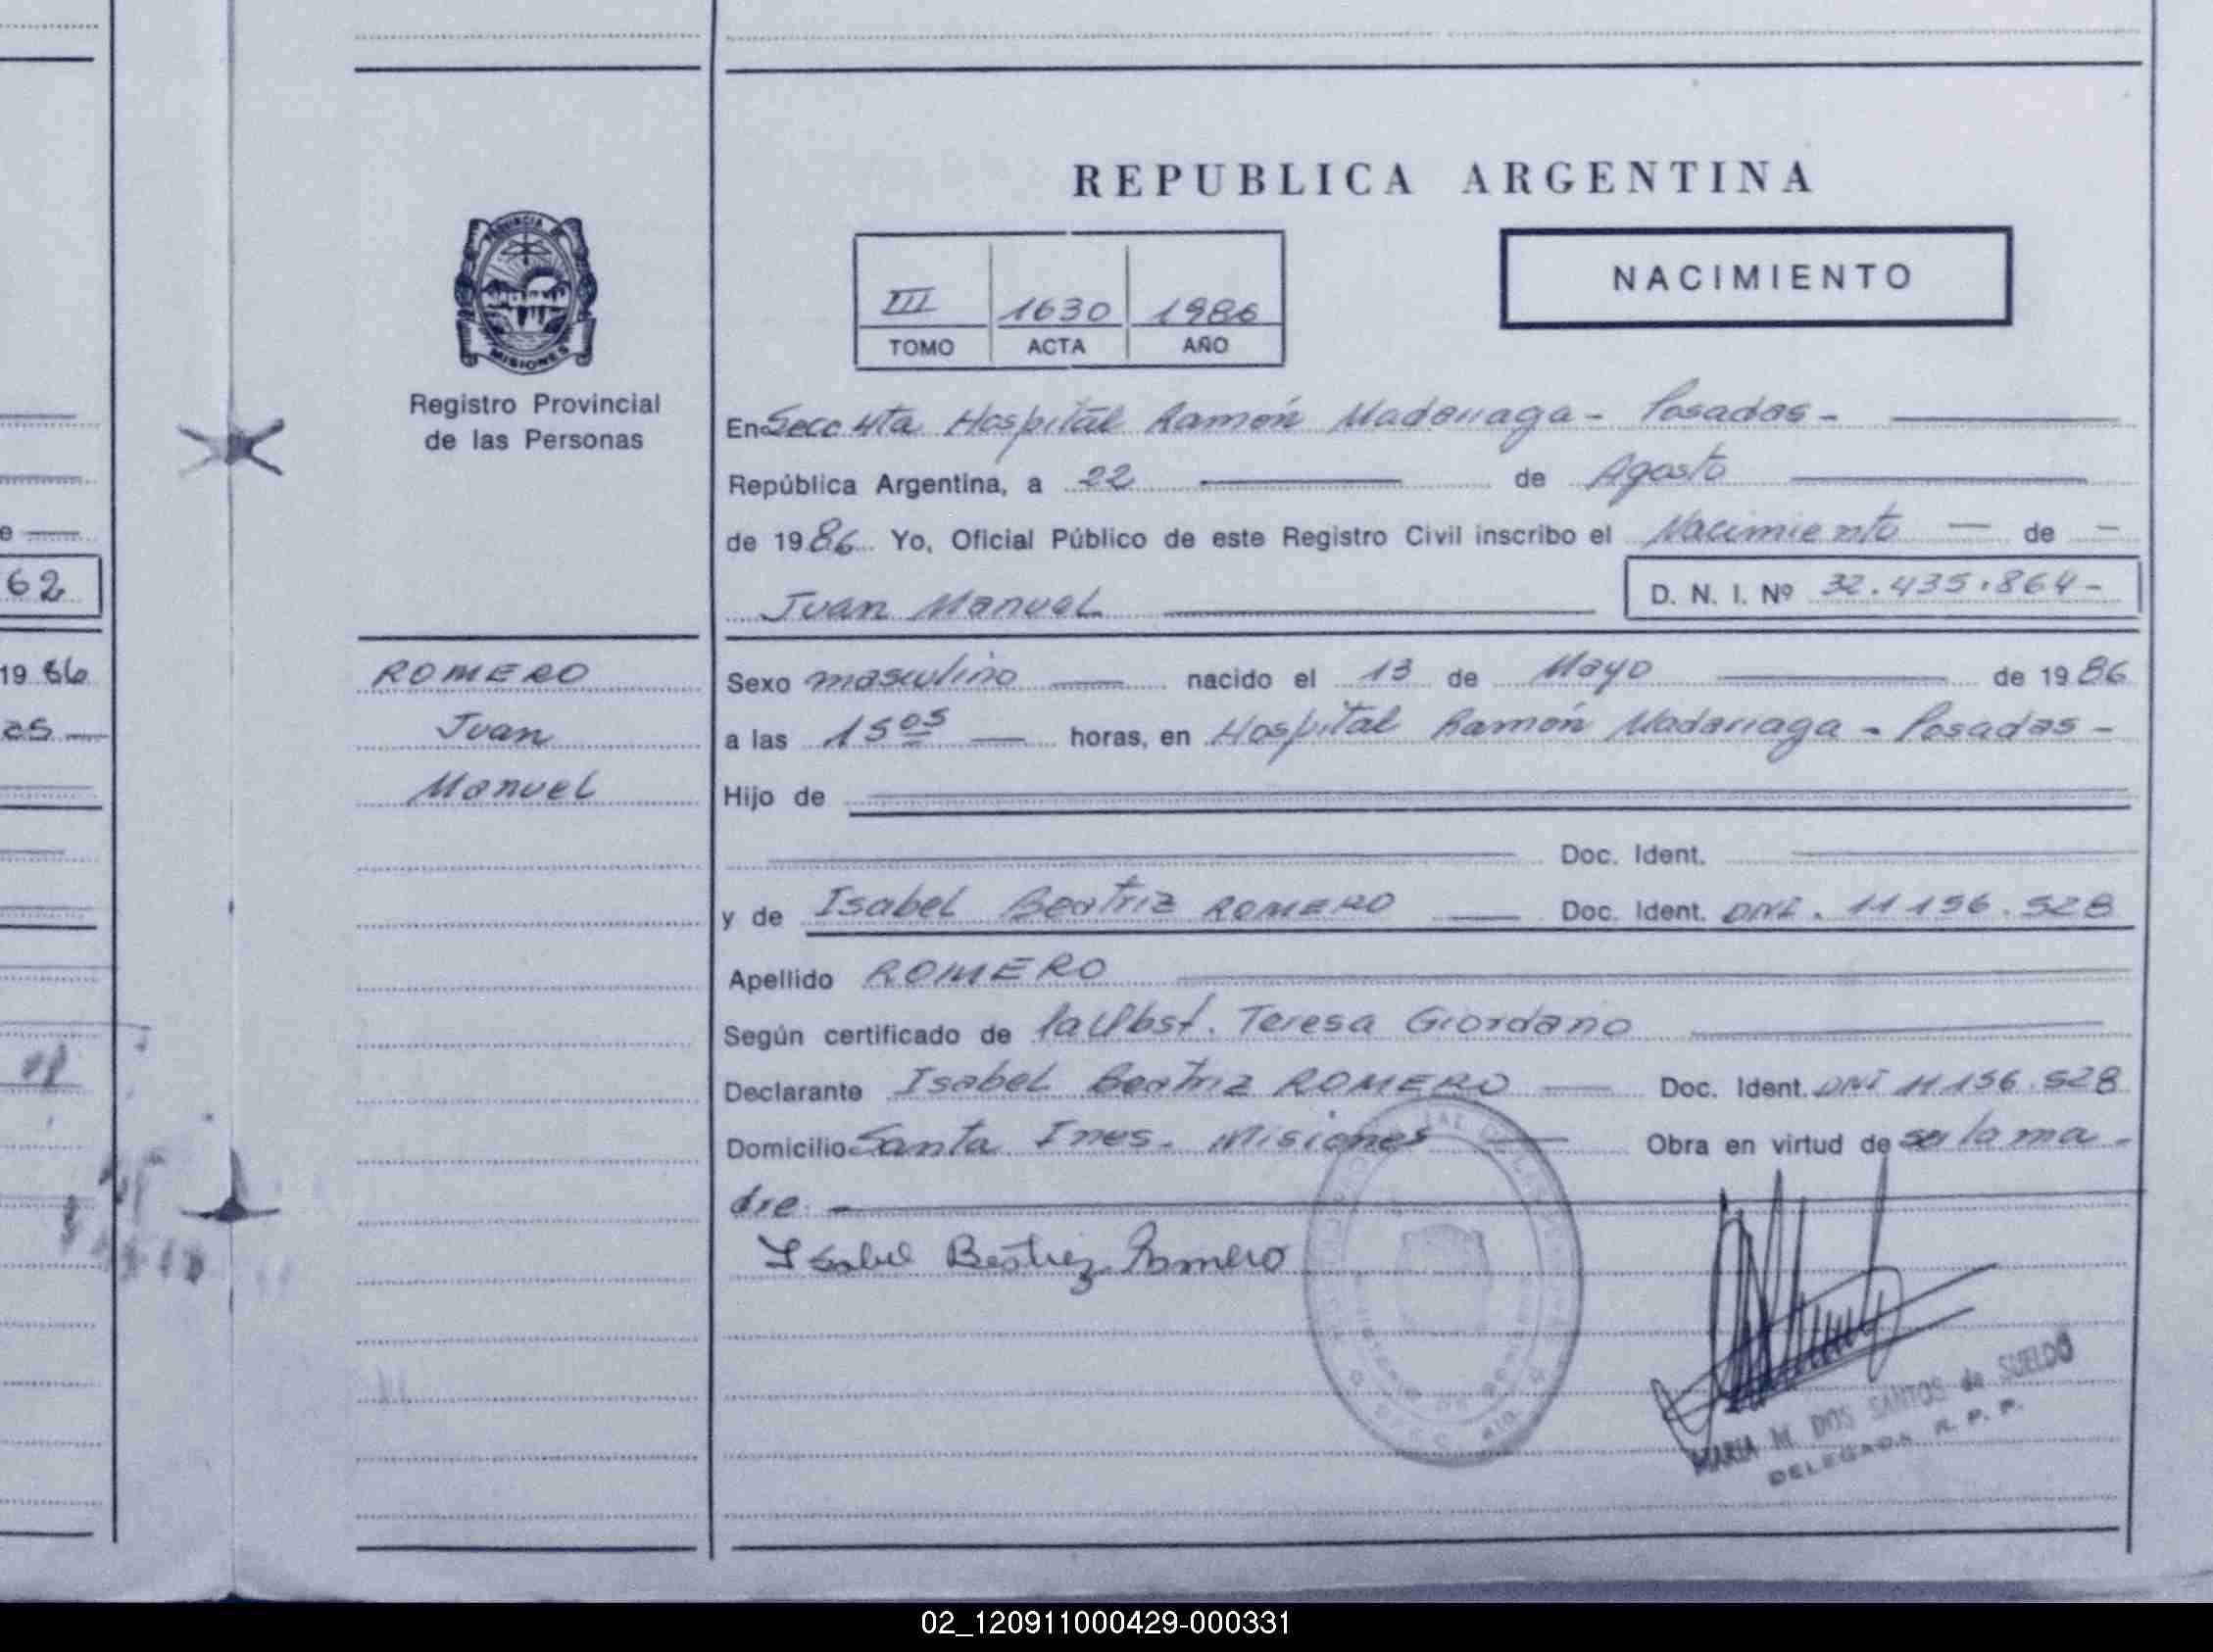 REPUBLICA ARGENTINA
NACIMIENTO
III 1630 1986
TOMO ACTA AÑO
PROVINCIA DE
MISIONES
Registro Provincial
de las Personas
En Secc 4ta Hospital Ramón Madariaga - Posadas -
República Argentina, a 22 de Agosto
de 1986 Yo, Oficial Público de este Registro Civil inscribo el Nacimiento de
Juan Manuel D. N. I. Nº 32.435.864-
ROMERO
Juan
Manuel
Sexo masculino nacido el 13 de Mayo de 1986
a las 15 05 horas, en Hospital Ramón Madariaga - Posadas -
Hijo de
Doc. Ident.
y de Isabel Beatriz ROMERO Doc. Ident. DNI. 11 156.528
Apellido ROMERO
Según certificado de la Obst. Teresa Giordano
Declarante Isabel Beatriz ROMERO Doc. Ident. DNI 11 156.528
Domicilio Santa Ines. Misiones Obra en virtud de ser la ma-
dre.
Isabel Beatriz Romero
MARIA M. DOS SANTOS de SUELDO
DELEGADA R. P. P.
62
1986
25
e
02_120911000429-000331